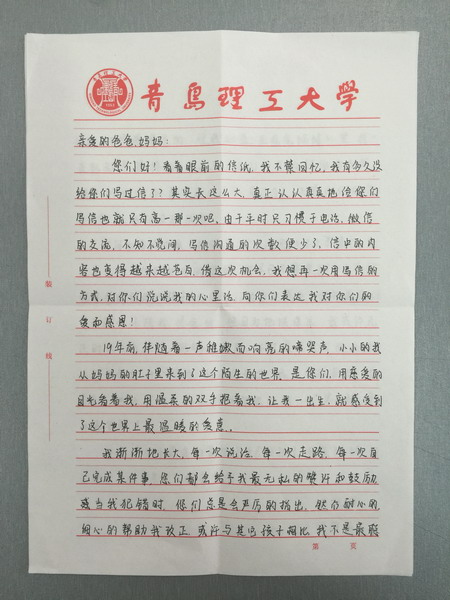 青岛理工大学
亲爱的爸爸、妈妈:
您们好!看着眼前的信纸,我不禁回忆,我有多久没
给你们写过信了?其实长这么大,真正认认真真地给你们
写信也就只有高一那一次吧,由于平时只习惯于电话、微信
的交流,不知不觉间,写信沟通的次数便少了,信中的内
容也变得越来越苍白,借这次机会,我想再一次用写信的
方式,对你们说说我的心里话,向你们表达我对你们的
爱和感恩!
19年前,伴随着一声稚嫩而响亮的啼哭声,小小的我
从妈妈的肚子里来到了这个陌生的世界,是您们,用慈爱的
目光看着我,用温柔的双手抱着我,让我一出生,就感受到
了这个世界上最温暖的爱意。
我渐渐地长大,每一次说话,每一次走路,每一次自
己完成某件事,您们都会给予我最无私的赞许和鼓励,
或当我犯错时,您们总是会严厉的指出,然后耐心的
细心的帮助我改正,或许与其它孩子相比,我不是最聪
装
订
线
第 页